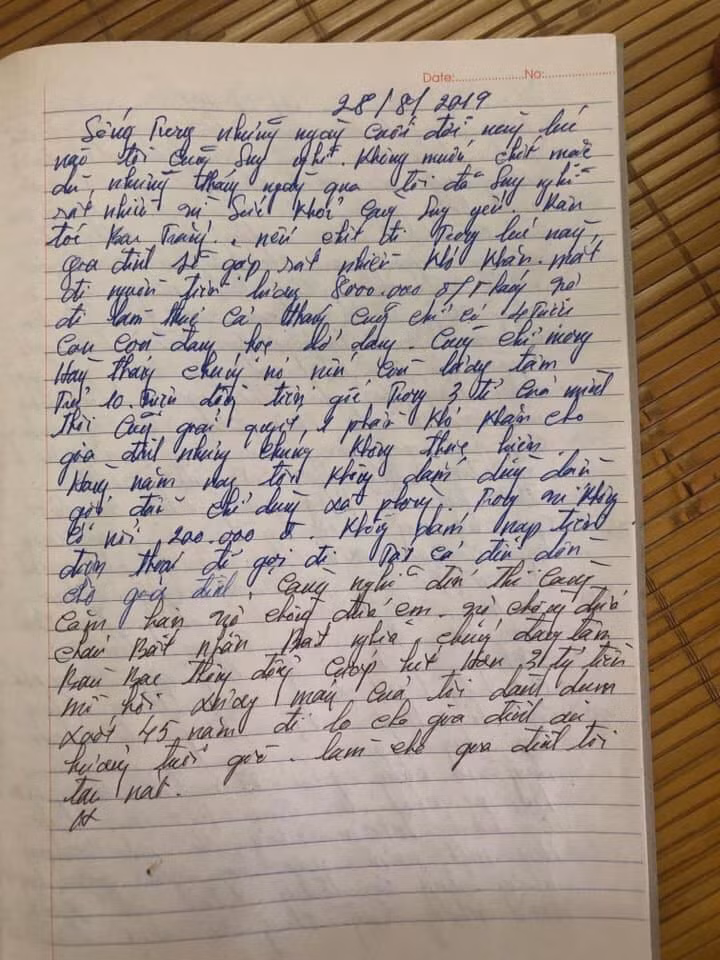 Date:..................No:..................
28/8/2019
Sống Trong những ngày cuối đời này lúc
nào tôi cũng suy nghĩ. Không muốn chết mặc
dù, những tháng ngày qua tôi đã suy nghĩ
rất nhiều vì sức khỏe càng suy yếu.
tới nếu chết đi Trong lúc này,
gia đình sẽ gặp rất nhiều khó khăn. mất
đi nguồn tiền lương 8000.000 đ/Tháng vợ
đi làm thuê cả tháng cũng chỉ có 4 Triệu
con còn đang học dở dang. Cũng chỉ mong
Hàng tháng chúng nó nếu còn lương tâm
Trả 10 Triệu đồng tiền gốc Trong 3 tỉ của mình
thôi cũng giải quyết 1 phần khó khăn cho
gia đình nhưng chúng không thực hiện.
Hàng năm nay tôi không dám dùng dầu
gội đầu chỉ dùng xà phòng. Trong ví không
có nổi 200.000 đ. Không dám nạp tiền
điện thoại để gọi đi Tất cả để dồn
cho gia đình. Càng nghĩ đến thì càng
căm hận vợ chồng đứa em. vợ chồng đứa
cháu Bất nhân Bất nghĩa chúng đang tâm
Bàn Bạc thông đồng cướp hết Hơn 3 tỷ tiền
mồ hôi xương máu của tôi dành dụm
suốt 45 năm để lo cho gia đình an
hưởng tuổi già. làm cho gia đình tôi
tan nát.